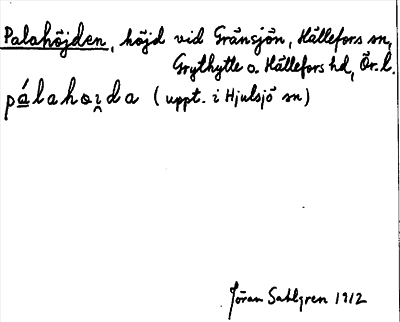 Palahöjden, höjd vid Gränsjön, Hällefors sn,
Grythytte o. Hällefors hd, Ör. l.
pálahoi̯da (uppt. i Hjulsjö sn)
Jöran Sahlgren 1912